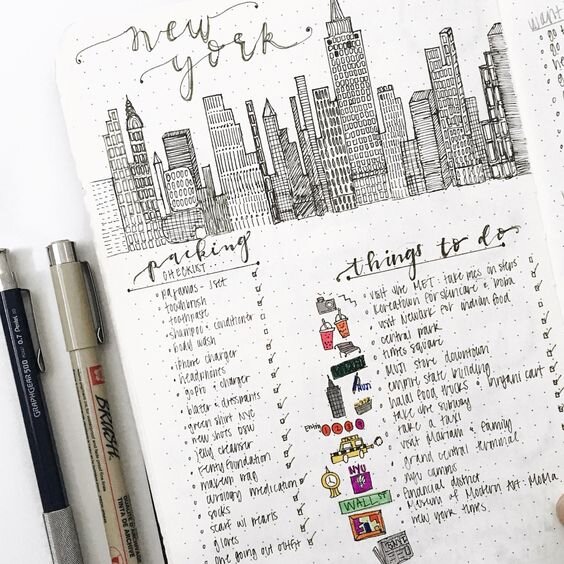 new
york
packing
CHECKLIST
pajamas - 1set
toothbrush
toothpaste
shampoo + conditioner
body wash
iPhone charger
headphones
gopro + charger
blazer + dresspants
green shirt NYC
new shoes DSW
jelly cleanser
fenty foundation
makeup bag
urology medication
socks
scarf w pearls
gloves
one going out outfit
things to do
visit the MET: take pics on steps
koreatown for skincare & boba
visit Newark for indian food
central park
times square
MUJI store downtown
empire state building
halal food trucks & cart
take the subway
take a taxi
visit Mariam & family
grand central terminal
nyu campus
financial district
Museum of Modern Art: MoMA
new york times
MUJI
NYU
WALL ST
want
go t
go to
need
GRAPHGEAR 500 0.7 Pentel
BRUSH